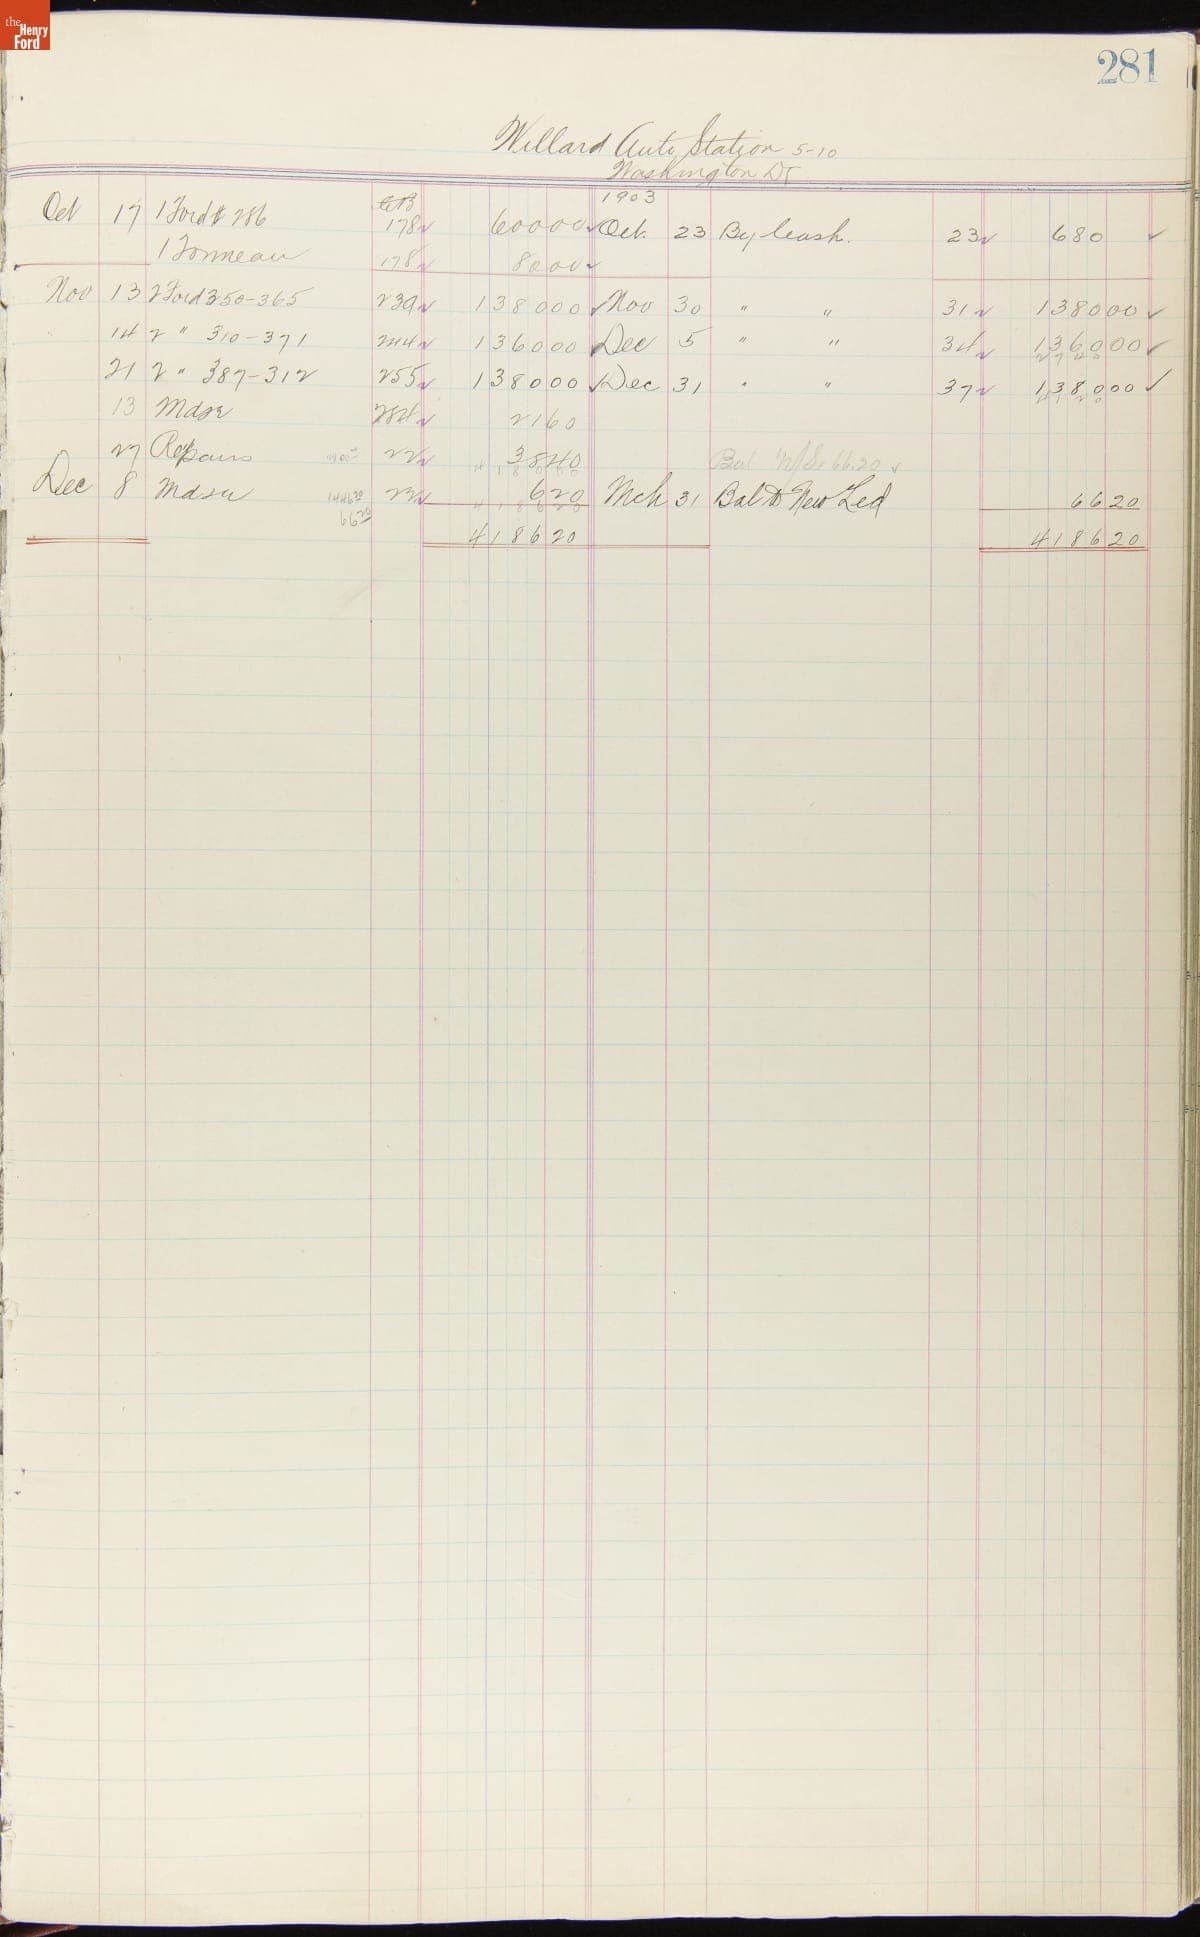 the Henry Ford
281
Willard Auto Station 5-10
Washington DC
1903
Oct 17 1 Ford # 286 178 ✓ 600 00 ✓ Oct. 23 By Cash. 23 ✓ 680 ✓
1 Tonneau 178 ✓ 80 00 ✓
Nov 13 2 Ford 350-365 239 ✓ 1380 00 ✓ Nov 30 " " 31 ✓ 1380 00 ✓
14 2 " 310-371 244 ✓ 1360 00 ✓ Dec 5 " " 34 ✓ 1360 00 ✓
2740
21 2 " 387-312 255 ✓ 1380 00 ✓ Dec 31 " " 37 ✓ 1380 00 ✓
4120
13 Mdse 284 ✓ 21 60
27 Repairs 22 ✓ 38 40 Bal 66.20 ✓
4180 00
Dec 8 Mdse 22 ✓ 6 20 Mch 31 Bal to New Led 66 20
66 20
4186 20
4186 20 4186 20